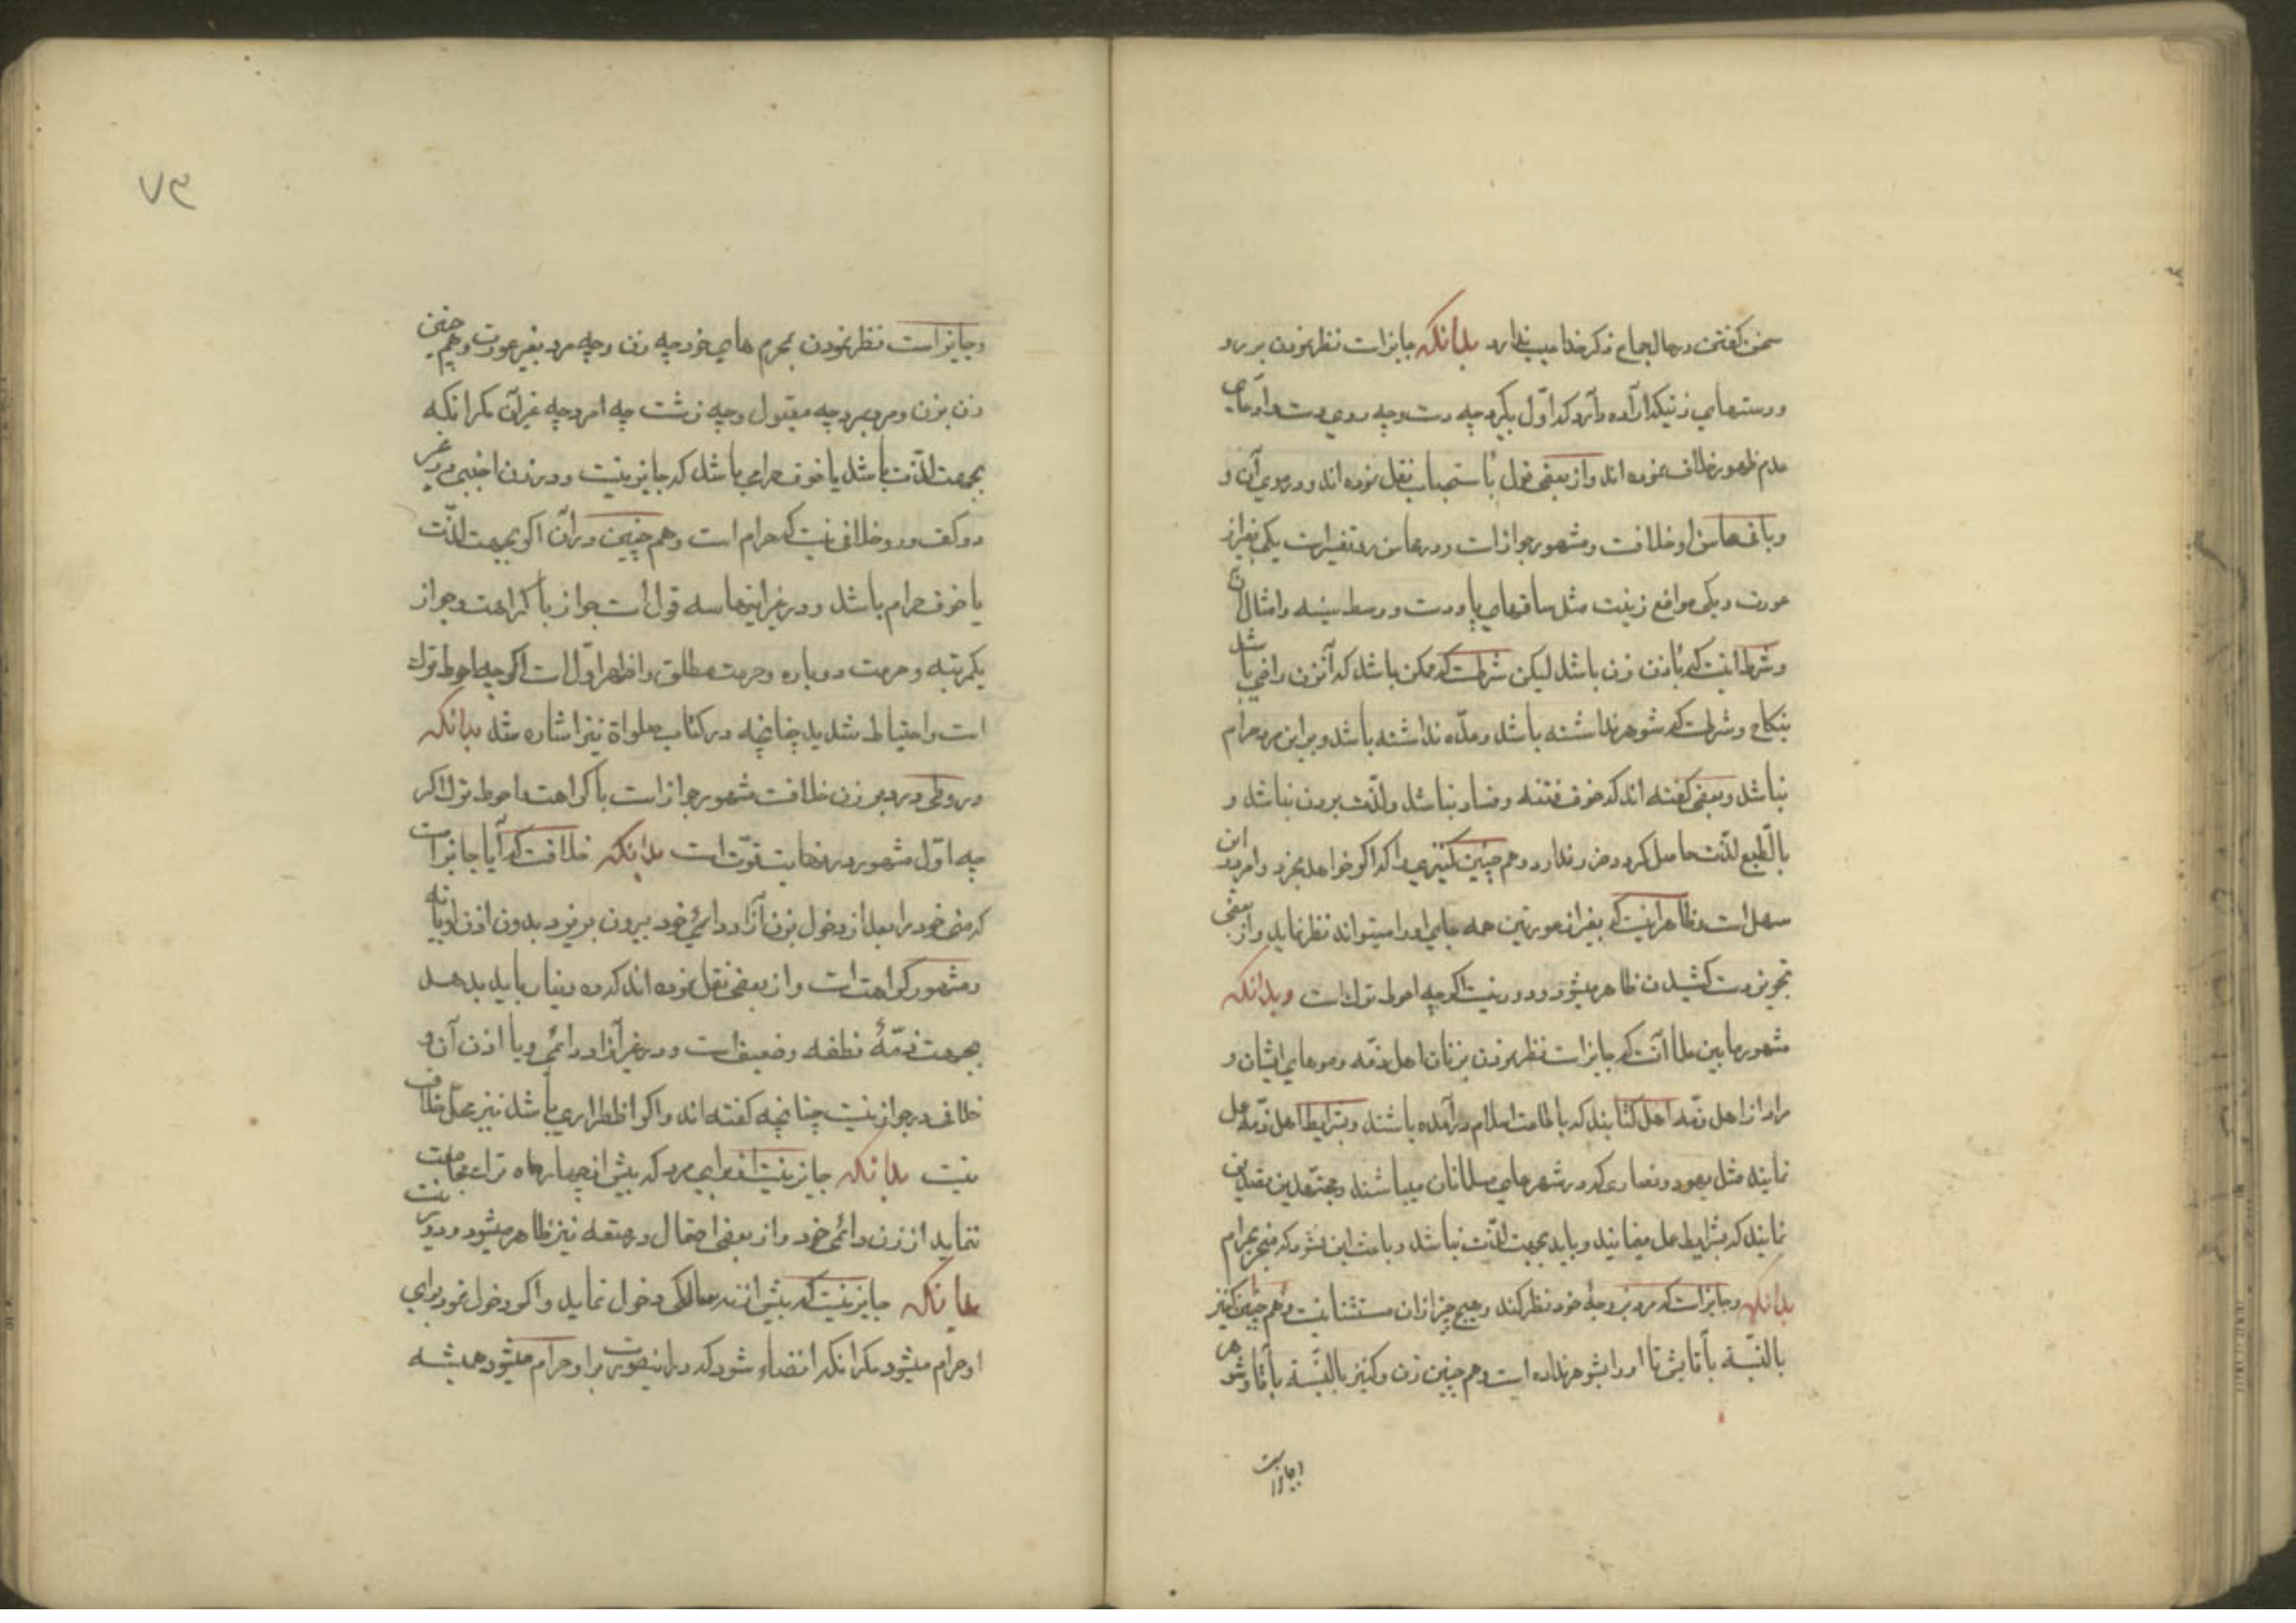 سخن گفتن در حال جماع ذکر خدا عیب ندارد بدانکه جایز است نظر نمودن بر رو
و دستهای زنیکه اراده دارد که اول بگیرد چه دست و چه روی دست و ادعای
عدم ظهور خلاف نموده اند و از بعضی قول باستحباب نقل نموده اند و در موی آن و
و باقی محاسن او خلافست و مشهور جواز است و در محاسن دو تفسیر است یکی بغیر از
عورت و یکی مواضع زینت مثل ساقهای پا و دست و وسط سینه و امثال آن
و شرط اینست که باذن زن باشد لیکن شرطست که ممکن باشد که آنزن راضی باشد
بنکاح و شرطست که شوهر نداشته باشد و عدّه نداشته باشد و بر این مرد حرام
نباشد و بعضی گفته اند که خوف فتنه و فساد نباشد و لذّت بردن نباشد و
بالطبع لذّت حاصل کردد ضرر ندارد و هم چنین کنیزی را که اکر خواهد بخرد و امر در این
سهل است و ظاهر اینست که بغیر از عورتین همه جای او را میتواند نظر نماید و از بعضی
تجویز دست کشیدن ظاهر میشود و دور نیست اکر چه احوط ترک است و بدانکه
مشهور مابین علما آنست که جایز است نظر نمودن بزنان اهل ذمّه و موهای ایشان و
مراد از اهل ذمّه اهل کتابیند که باطاعت اسلام درآمده باشند و بشرایط اهل ذمّه عمل
نمایند مثل یهود و نصاری که در شهرهای مسلمانان میباشند و مجتهدین
نمایند که بشرایط عمل مینمایند و باید بجهت لذّت نباشد و باعث این نشود که منجر بحرام
بدانکه و جایز است که مرد بزوجۀ خود نظر کند و هیچ چیز از آن مستثنا نیست و هم چنین کنیز
بالنسبة باقایش تا او را بشوهر نداده است و هم چنین زن و کنیز بالنسبة باقا و شوهر
و جایز است
۷۴
و جایز است نظر نمودن بمحرم های خود چه زن و چه مرد بغیر عورت و هم چنین
زن بزن و مرد بمرد چه مقبول و چه زشت چه امرد چه غیر آن مکر انکه
بجهت لذّت باشد یا خوف حرامی باشد که جایز نیست و در زن اجنبی در غیر
دو کف و رو خلافی نیست که حرام است و هم چنین در آن اکر بجهت لذّت
یا خوف حرام باشد و در غیر اینها سه قول است جواز با کراهت و جواز
یکمرتبه و حرمت دوباره و حرمت مطلق و اظهر اوّل است اکر چه احوط ترک
است و احتیاط شدید چنانچه در کتاب صلواة نیز اشاره شد بدانکه
در وطی در دبر زن خلافست مشهور جواز است با کراهت و احوط ترک اکر
چه اوّل مشهور در نهایت قوّت است بدانکه خلافست که آیا جایز است
که منی خود را بعد از دخول بزن آزاد دائمی خود بیرون بریزد بدون اذن او یا نه
و مشهور کراهت است و از بعضی نقل نموده اند که ده دینار باید بدهد
بجهت ذمّۀ نطفه و ضعیف است و در غیر آزاد دائمی و یا اذن آن و
خلافی در جواز نیست چنانچه گفته اند و اکر اظطراری باشد نیز محلّ خلاف
نیست بدانکه جایز نیست از برای مرد که بیش از چهار ماه ترک مجامعت
ننماید از زن دائمی خود و از بعضی احتمال در متعه نیز ظاهر میشود و دور نیست
بدانکه جایز نیست که بیش از نه سالگی دخول نماید و اکر دخول نمود برای
او حرام میشود مکر انکه افضاء شود که در اینصورت برا و حرام میشود همیشه